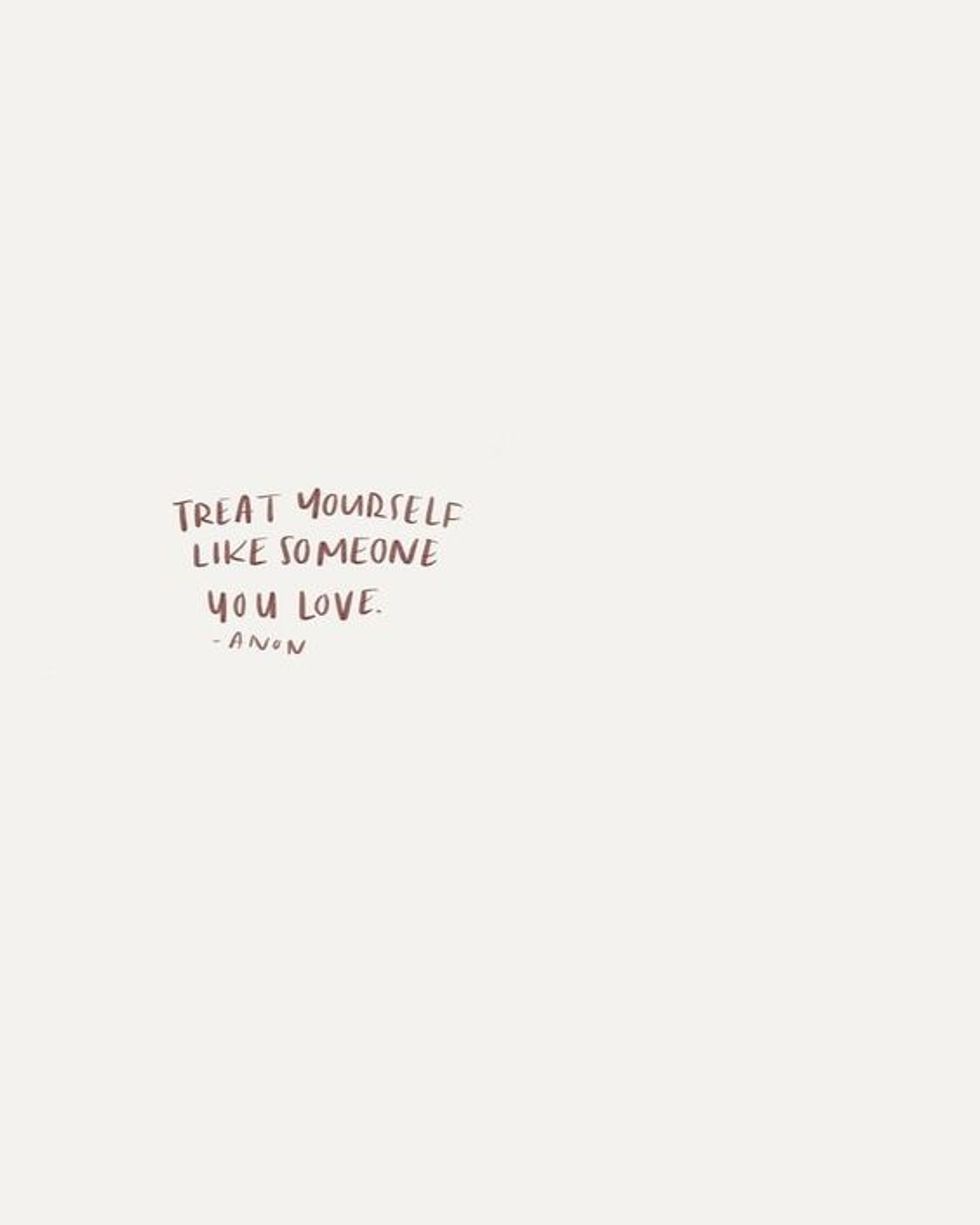 TREAT YOURSELF
LIKE SOMEONE
YOU LOVE.
- ANON